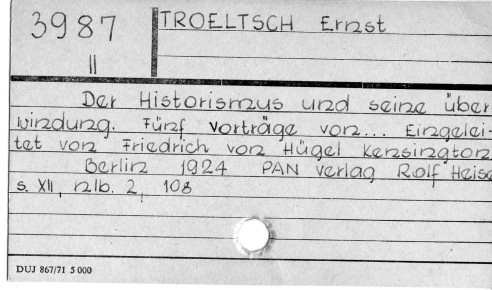 3987 TROELTSCH Ernst
II
Der Historismus und seine über
windung. Fünf vorträge von... Eingelei-
tet von Friedrich von Hügel Kensington.
Berlin 1924 PAN verlag Rolf Heise
s. XII, nlb. 2, 108
DUJ 867/71 5 000